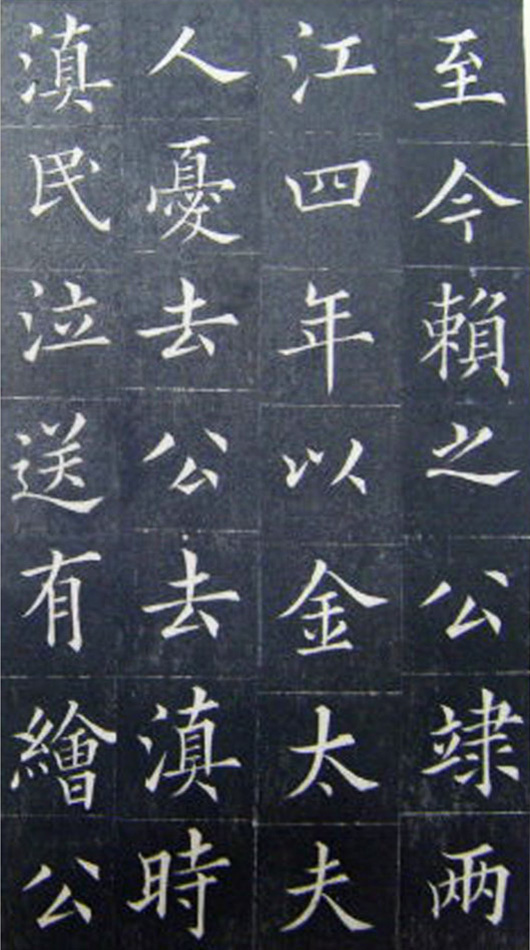 至今賴之公䇐两
江四年以金太夫
人憂去公去滇時
滇民泣送有繪公